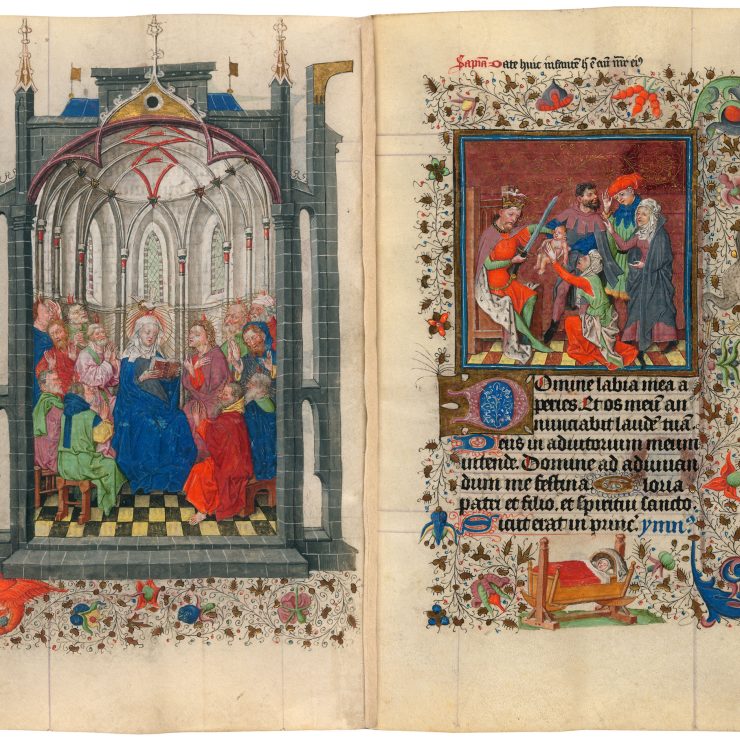 Sapiā Date huic infantē h̄ ē eni mr̄ ei⁹
Domine labia mea a
peries. Et os meū an
nunciabit laudē tuā.
Deus in adiutorium meum
intende. Domine ad adiuuan
dum me festina Gloria
patri et filio. et spiritui sancto.
Sicut erat in princ̄ ymn⁹